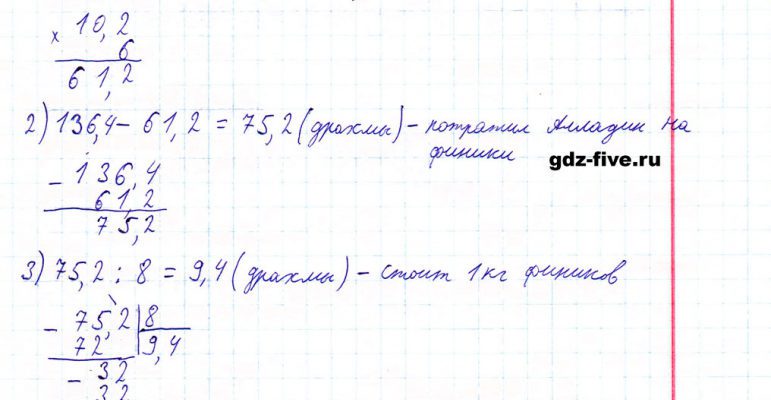 × 10,2
6
61,2
2) 136,4 - 61,2 = 75,2 (драхмы) - потратил Алладин на
финики
gdz-five.ru
- 136,4
61,2
75,2
3) 75,2 : 8 = 9,4 (драхмы) - стоит 1кг фиников
- 75,2 | 8
72 | 9,4
- 32
32